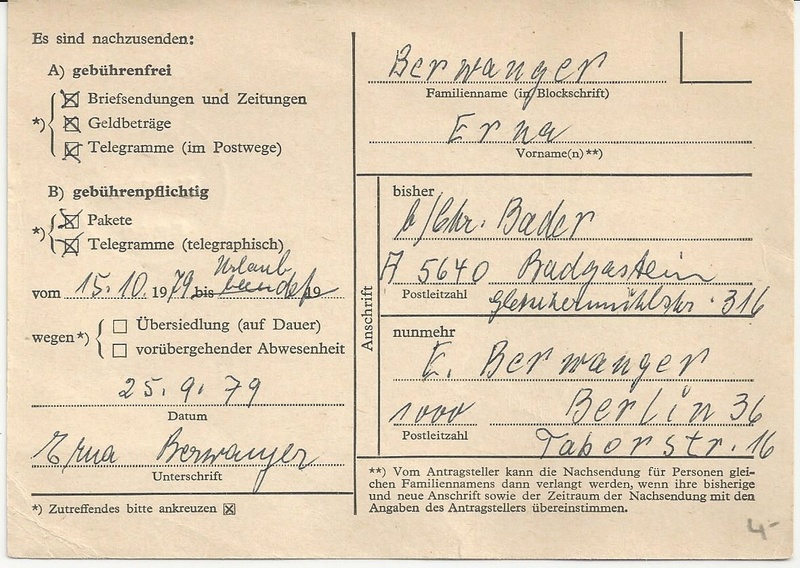 Es sind nachzusenden:
A) gebührenfrei
*) ☒ Briefsendungen und Zeitungen
☒ Geldbeträge
☒ Telegramme (im Postwege)
B) gebührenpflichtig
*) ☒ Pakete
☒ Telegramme (telegraphisch)
Urlaub
vom 15.10.1979 bis 19
wegen*) ☐ Übersiedlung (auf Dauer)
☐ vorübergehender Abwesenheit
25.9.79
Datum
Erna Berwanger
Unterschrift
*) Zutreffendes bitte ankreuzen ☒
Berwanger
Familienname (in Blockschrift)
Erna
Vorname(n) **)
Anschrift
bisher
b/Chr. Bader
A 5640 Badgastein
Postleitzahl
316
nunmehr
E. Berwanger
1000 Berlin 36
Postleitzahl
Taborstr. 16
**) Vom Antragsteller kann die Nachsendung für Personen glei-
chen Familiennamens dann verlangt werden, wenn ihre bisherige
und neue Anschrift sowie der Zeitraum der Nachsendung mit den
Angaben des Antragstellers übereinstimmen.
4-